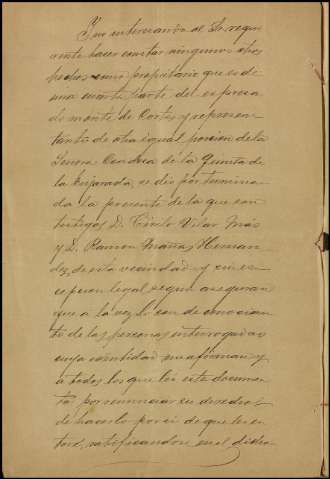 Y no interesando al Sr. requi
rente hacer constar ningunos otros
hechos como propietario que es de
una cuarta parte del expresa
do monte de Cortes y represen
tante de otra igual porcion de la
Señora Condesa de la Quinta de
la Enjarada, se dio por termina
da la presente de la que son
testigos D. Cirilo Vilar Más
y D. Ramon Mañas Hernan
dez, de esta vecindad y sin ex
cepcion legal segun aseguran
que a la vez lo son de conocimien
to de las personas interrogadas
cuya identidad me afirman y
a todos los que leí este documen
to por renunciar su derecho
de hacerlo por si de que les en
teré, ratificandose en el